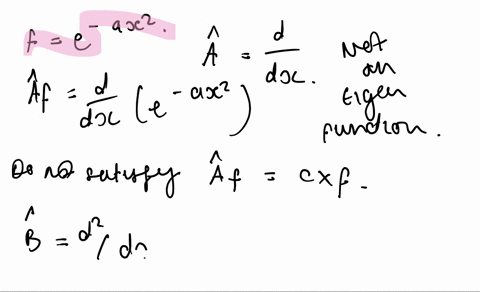 f = e^{-ax²}.
Â = d/dx.
Not
an
Eigen
function.
Âf = d/dx (e^{-ax²})
Do not satisfy Âf = c x f.
B̂ = d²/dx